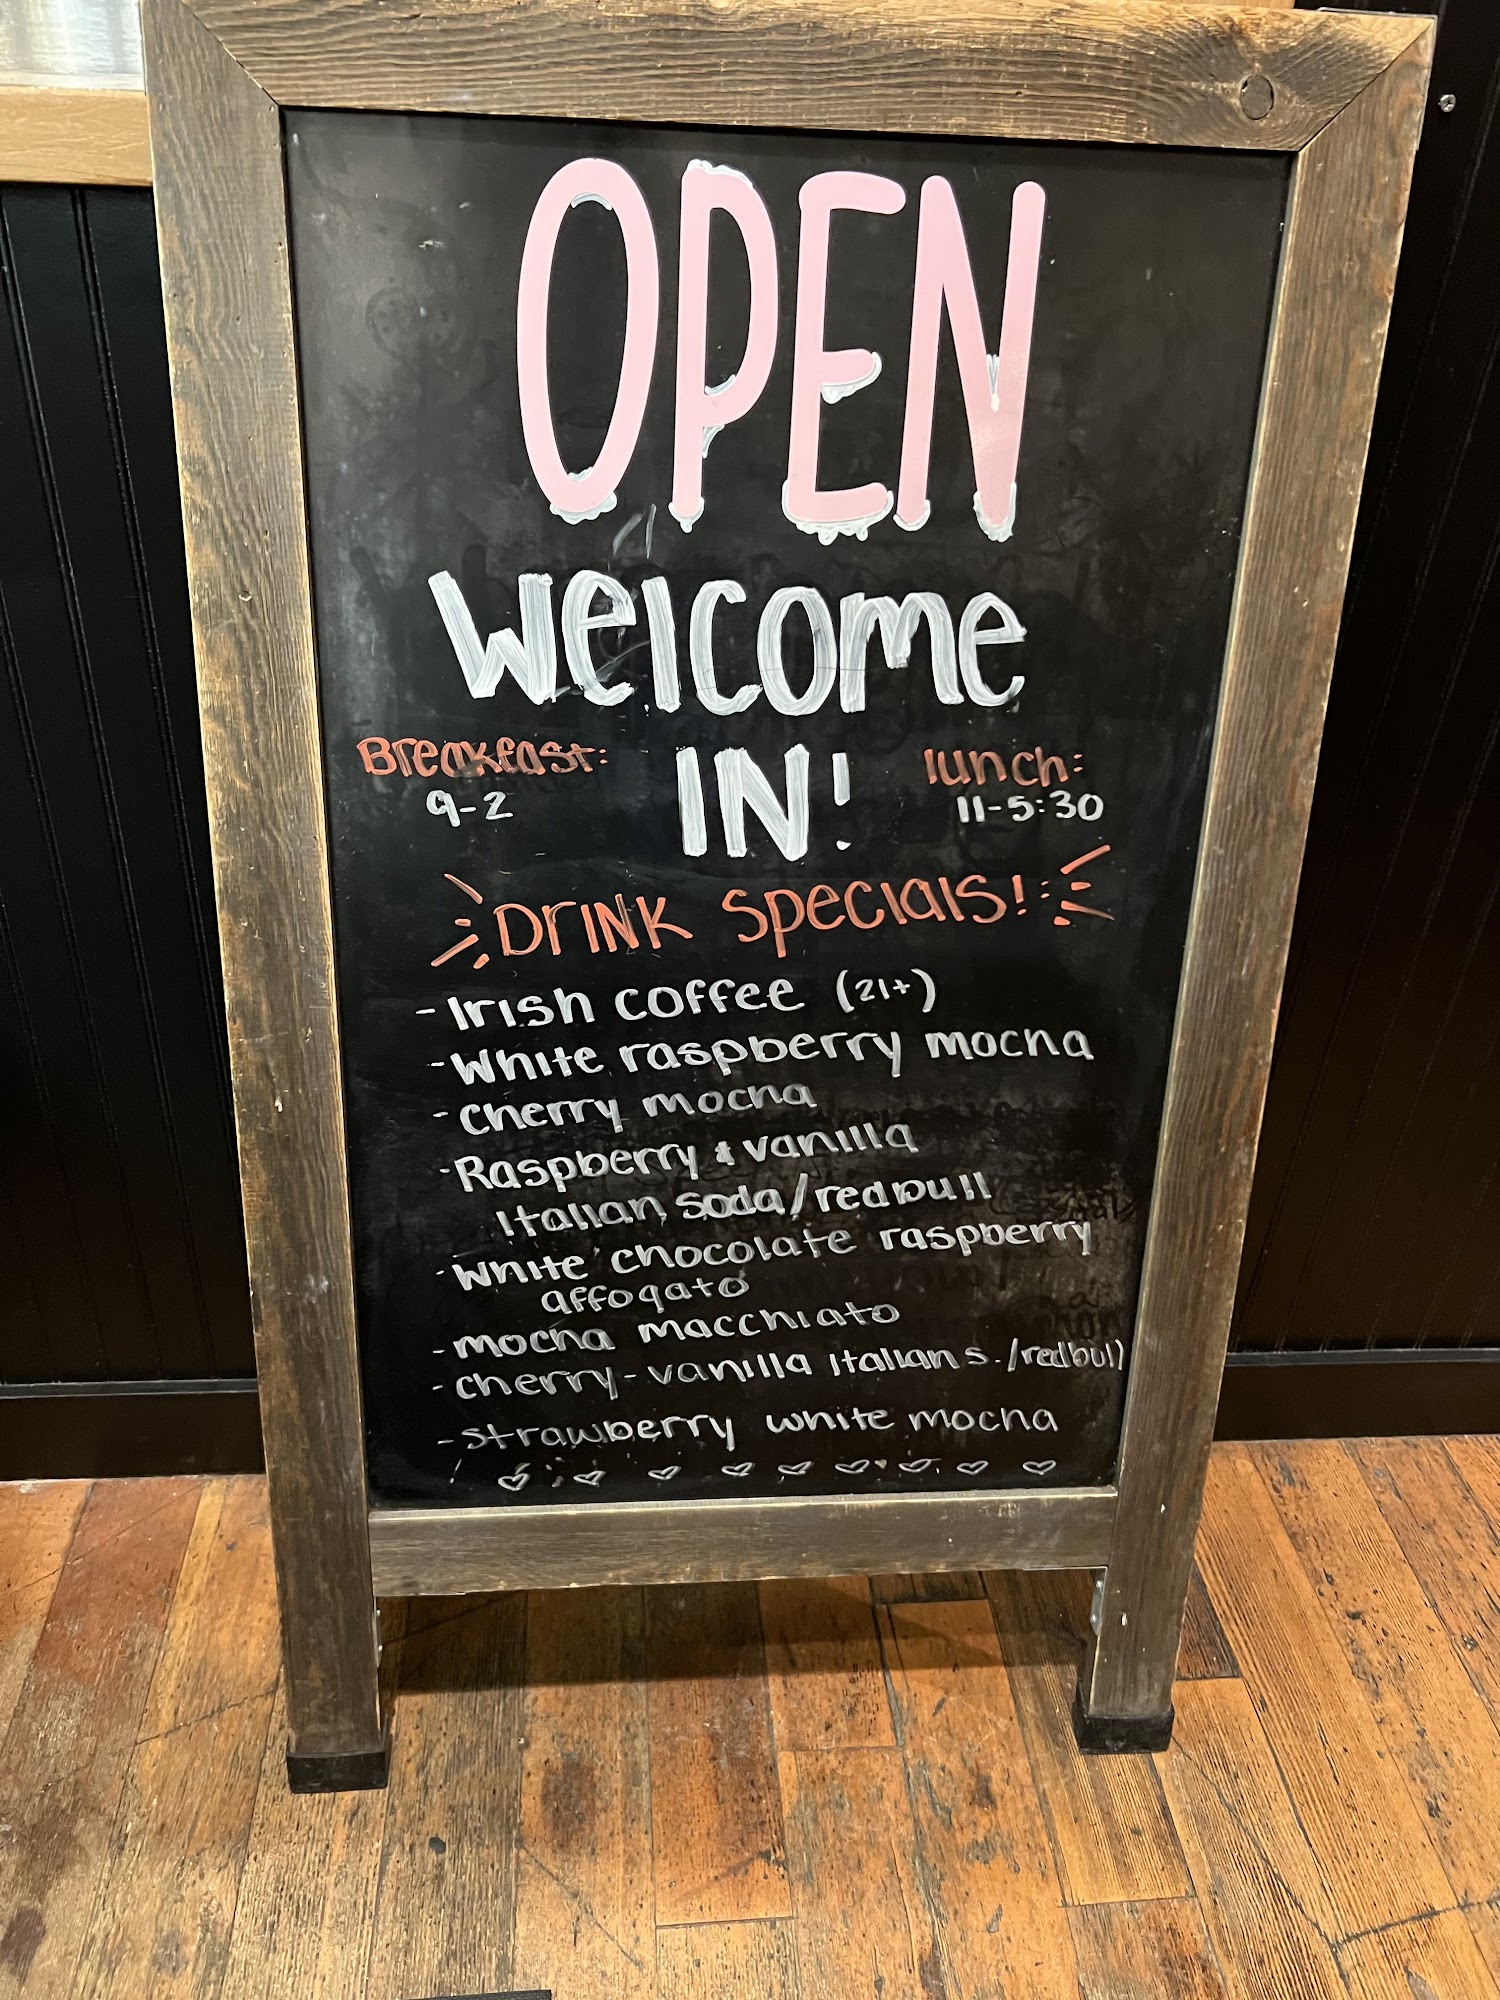 OPEN
Welcome
IN!
Breakfast:
9-2
lunch:
11-5:30
Drink Specials!
- Irish coffee (21+)
- White raspberry mocha
- Cherry mocha
- Raspberry & vanilla
Italian soda/redbull
- White chocolate raspberry
affogato
- mocha macchiato
- cherry-vanilla Italian s./redbull
- strawberry white mocha